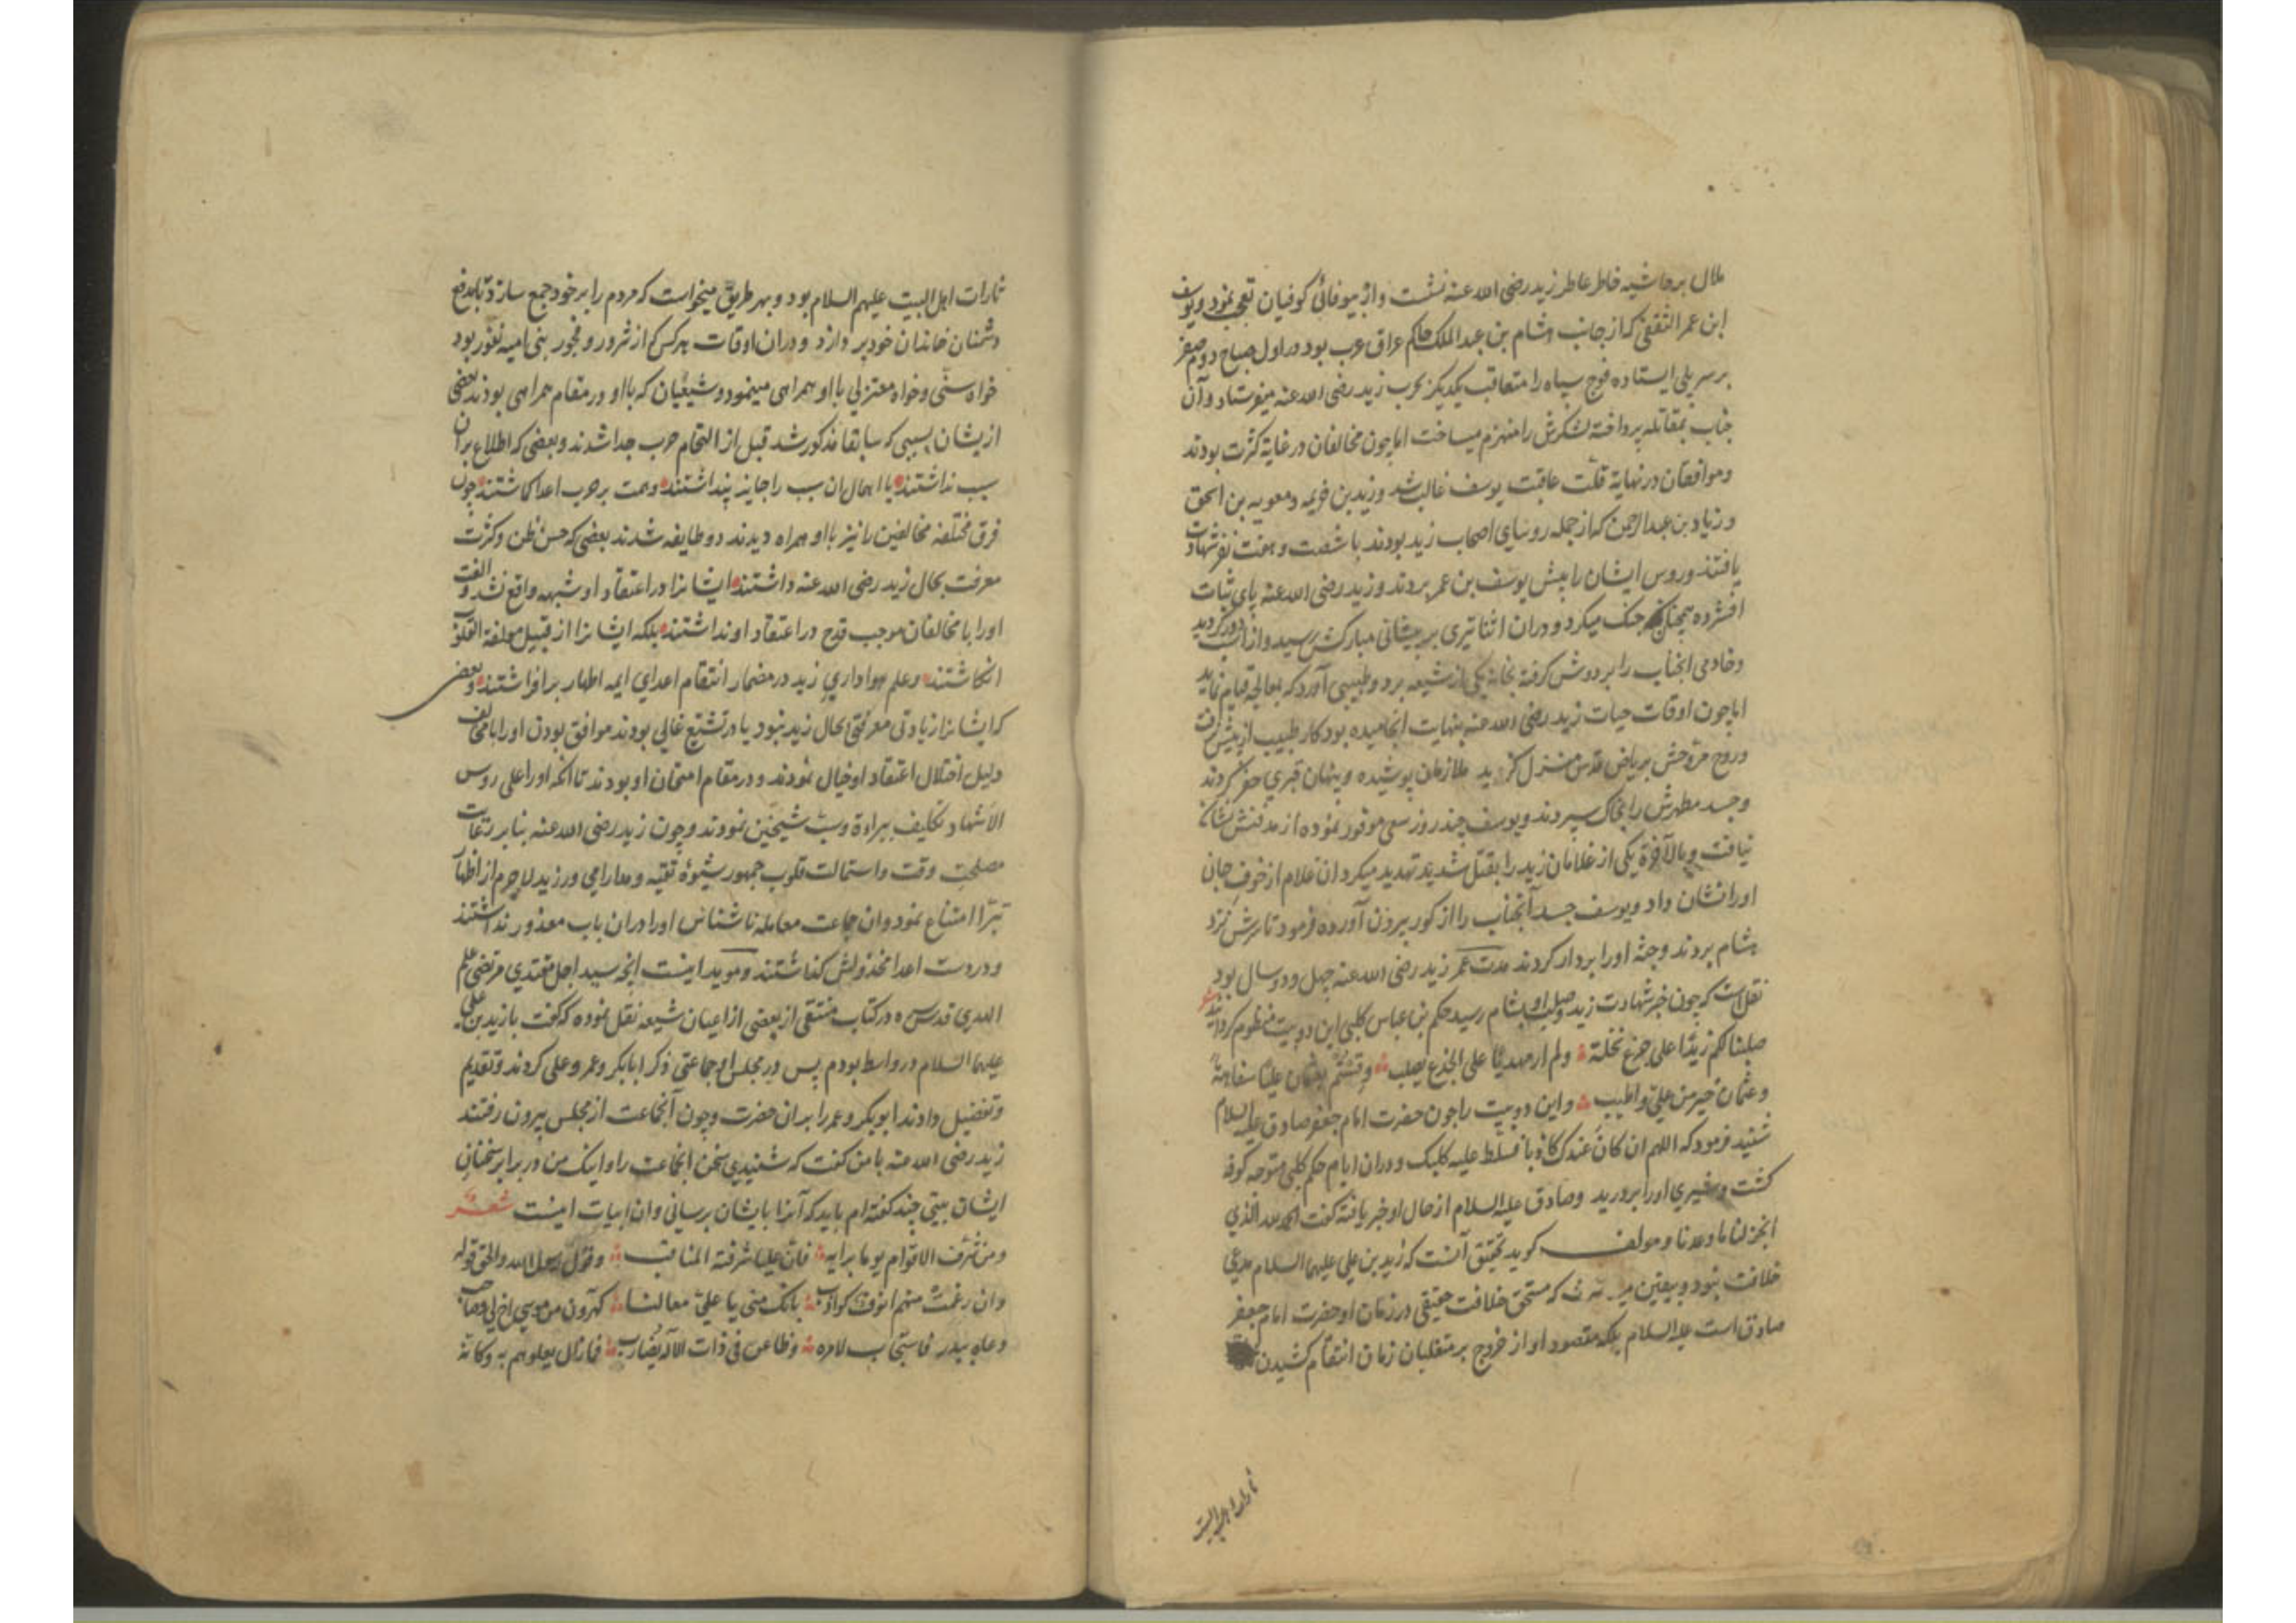 ملال بر حاشیه خاطر عاطر زید رضی الله عنه نشست و از بیوفائی کوفیان تعجب نمود و یوسف
ابن عمر الثقفی که از جانب هشام بن عبد الملک حاکم عراق عرب بود در اول صباح دوم صفر
بر سر پلی ایستاده فوج سپاه را متعاقب یکدیگر بحرب زید رضی الله عنه میفرستاد و آن
جناب بمقاتله پرداخته لشکرش را منهزم میساخت اما چون مخالفان در غایة کثرت بودند
و موافقان در نهایة قلت عاقبت یوسف غالب شد و زید بن خزیمه و معویه بن اسحق
و زیاد بن عبد الرحمن که از جمله روسای اصحاب زید بودند با شصت و هفت نفر شهادت
یافتند و روس ایشان را پیش یوسف بن عمر بردند و زید رضی الله عنه پای ثبات
افشرده همچنان جنک میکرد و دران اثنا تیری بر پیشانی مبارکش رسید و از اسب دور کردید
و خادمی انجناب را بر دوش کرفته بخانه یکی از شیعه برد و طبیبی آورد که بمعالجه قیام نماید
اما چون اوقات حیات زید رضی الله عنه بنهایت انجامیده بود کار طبیب از پیش نرفت
و روح پرفتوحش بریاض قدس منزل کزید ملازمان پوشیده و پنهان قبری حفر کردند
و جسد مطهرش را بخاک سپردند و یوسف چند روز سعی موفور نموده از مدفنش نشان
نیافت و بالآخرة یکی از غلامان زید را بقتل شدید تهدید میکرد ان غلام از خوف جان
او را نشان داد و یوسف جسد آنجناب را از کور بیرون آورده فرمود تا سرش نزد
هشام بردند و جثه او را بر دار کردند مدت عمر زید رضی الله عنه چهل و دو سال بود
نقلست که چون خبر شهادت زید و صلب او بشام رسید حکم بن عباس کلبی این دو بیت منظوم کردانید شعر
صلبنا لکم زیدا علی جذع نخلة ولم ار مهدیا علی الجذع یصلب وقستم بعثمان علیا سفاهة
وعثمان خیر من علی واطیب و این دو بیت را چون حضرت امام جعفر صادق علیه السلام
شنید فرمود که اللهم ان کان عندک کاذبا فسلط علیه کلبک و دران ایام حکم کلبی متوجه کوفه
کشت و شیری او را بر درید و صادق علیه السلام از حال او خبر یافته کفت الحمد لله الذی
انجز لنا ما وعدنا و مولف کوید تحقیق آنست که زید بن علی علیهما السلام مدعی
خلافت نبود و بیقین که مستحق خلافت حقیقی در زمان او حضرت امام جعفر
صادق است علیه السلام بلکه مقصود او از خروج بر متغلبان زمان انتقام کشیدن
ثارات اهل البیت
ثارات اهل البیت علیهم السلام بود و بهر طریق میخواست که مردم را بر خود جمع سازد تا بدفع
دشمنان خاندان خود پردازد و دران اوقات هر کس که از شرور و فجور بنی امیه نفور بود
خواه سنی و خواه معتزلی با او همراهی مینمود و شیعیان که با او در مقام همراهی بودند بعضی
ازیشان بسببی که سابقا مذکور شد قبل از التحام حرب جدا شدند و بعضی که اطلاع بران
سبب نداشتند یا اهمال ان سبب را جایز پنداشتند و همت بر حرب اعدا کماشتند چون
فرق مختلفه مخالفین را نیز با او همراه دیدند دو طایفه شدند بعضی که حسن ظن و کثرت
معرفت بحال زید رضی الله عنه داشتند ایشانرا در اعتقاد او شبهه واقع نشد و الفت
او را با مخالفان موجب قدح در اعتقاد او نداشتند بلکه ایشانرا از قبیل مولفة القلوب
انکاشتند و علم هواداری زید در مضمار انتقام اعدای ایمه اطهار بر افراشتند و بعضی
که ایشانرا زیادتی معرفتی بحال زید نبود یا در تشیع غالی بودند موافق بودن او را با مخالف
دلیل اختلال اعتقاد او خیال نمودند و در مقام امتحان او بودند تا انکه او را علی روس
الاشهاد تکلیف ببراءة و سب شیخین نمودند و چون زید رضی الله عنه بنابر رعایت
مصلحت وقت و استمالت قلوب جمهور شیوهٔ تقیه و مدارا می ورزید لاجرم از اظهار
تبرا امتناع نمود و ان جماعت معامله ناشناس او را دران باب معذور نداشتند
و در دست اعدا مخذولش کذاشتند و موید اینست انچه سید اجل مقتدی مرتضی علم
الهدی قدس سره در کتاب منتقی از بعضی از اعیان شیعه نقل نموده که کفت با زید بن علی
علیهما السلام در واسط بودم پس در مجلس او جماعتی ذکر ابا بکر و عمر و علی کردند و تقدیم
و تفضیل دادند ابوبکر و عمر را بران حضرت و چون آنجماعت از مجلس بیرون رفتند
زید رضی الله عنه با من کفت که شنیدی سخن انجماعت را و اینک من در برابر سخنان
ایشان بیتی چند کفته ام باید که آنرا بایشان برسانی و ان ابیات اینست شعر
ومن شرف الاقوام یوما برایه فان علیا شرفته المناقب وقول رسول الله والحق قوله
وان رغمت منهم انوف کواذب بانک منی یا علی معالنا کهرون من موسی اخ لی وصاحب
دعاه ببدر فاستجاب لامره وظاعن فی ذات الاله یضارب فما زال یعلوهم به وکانه